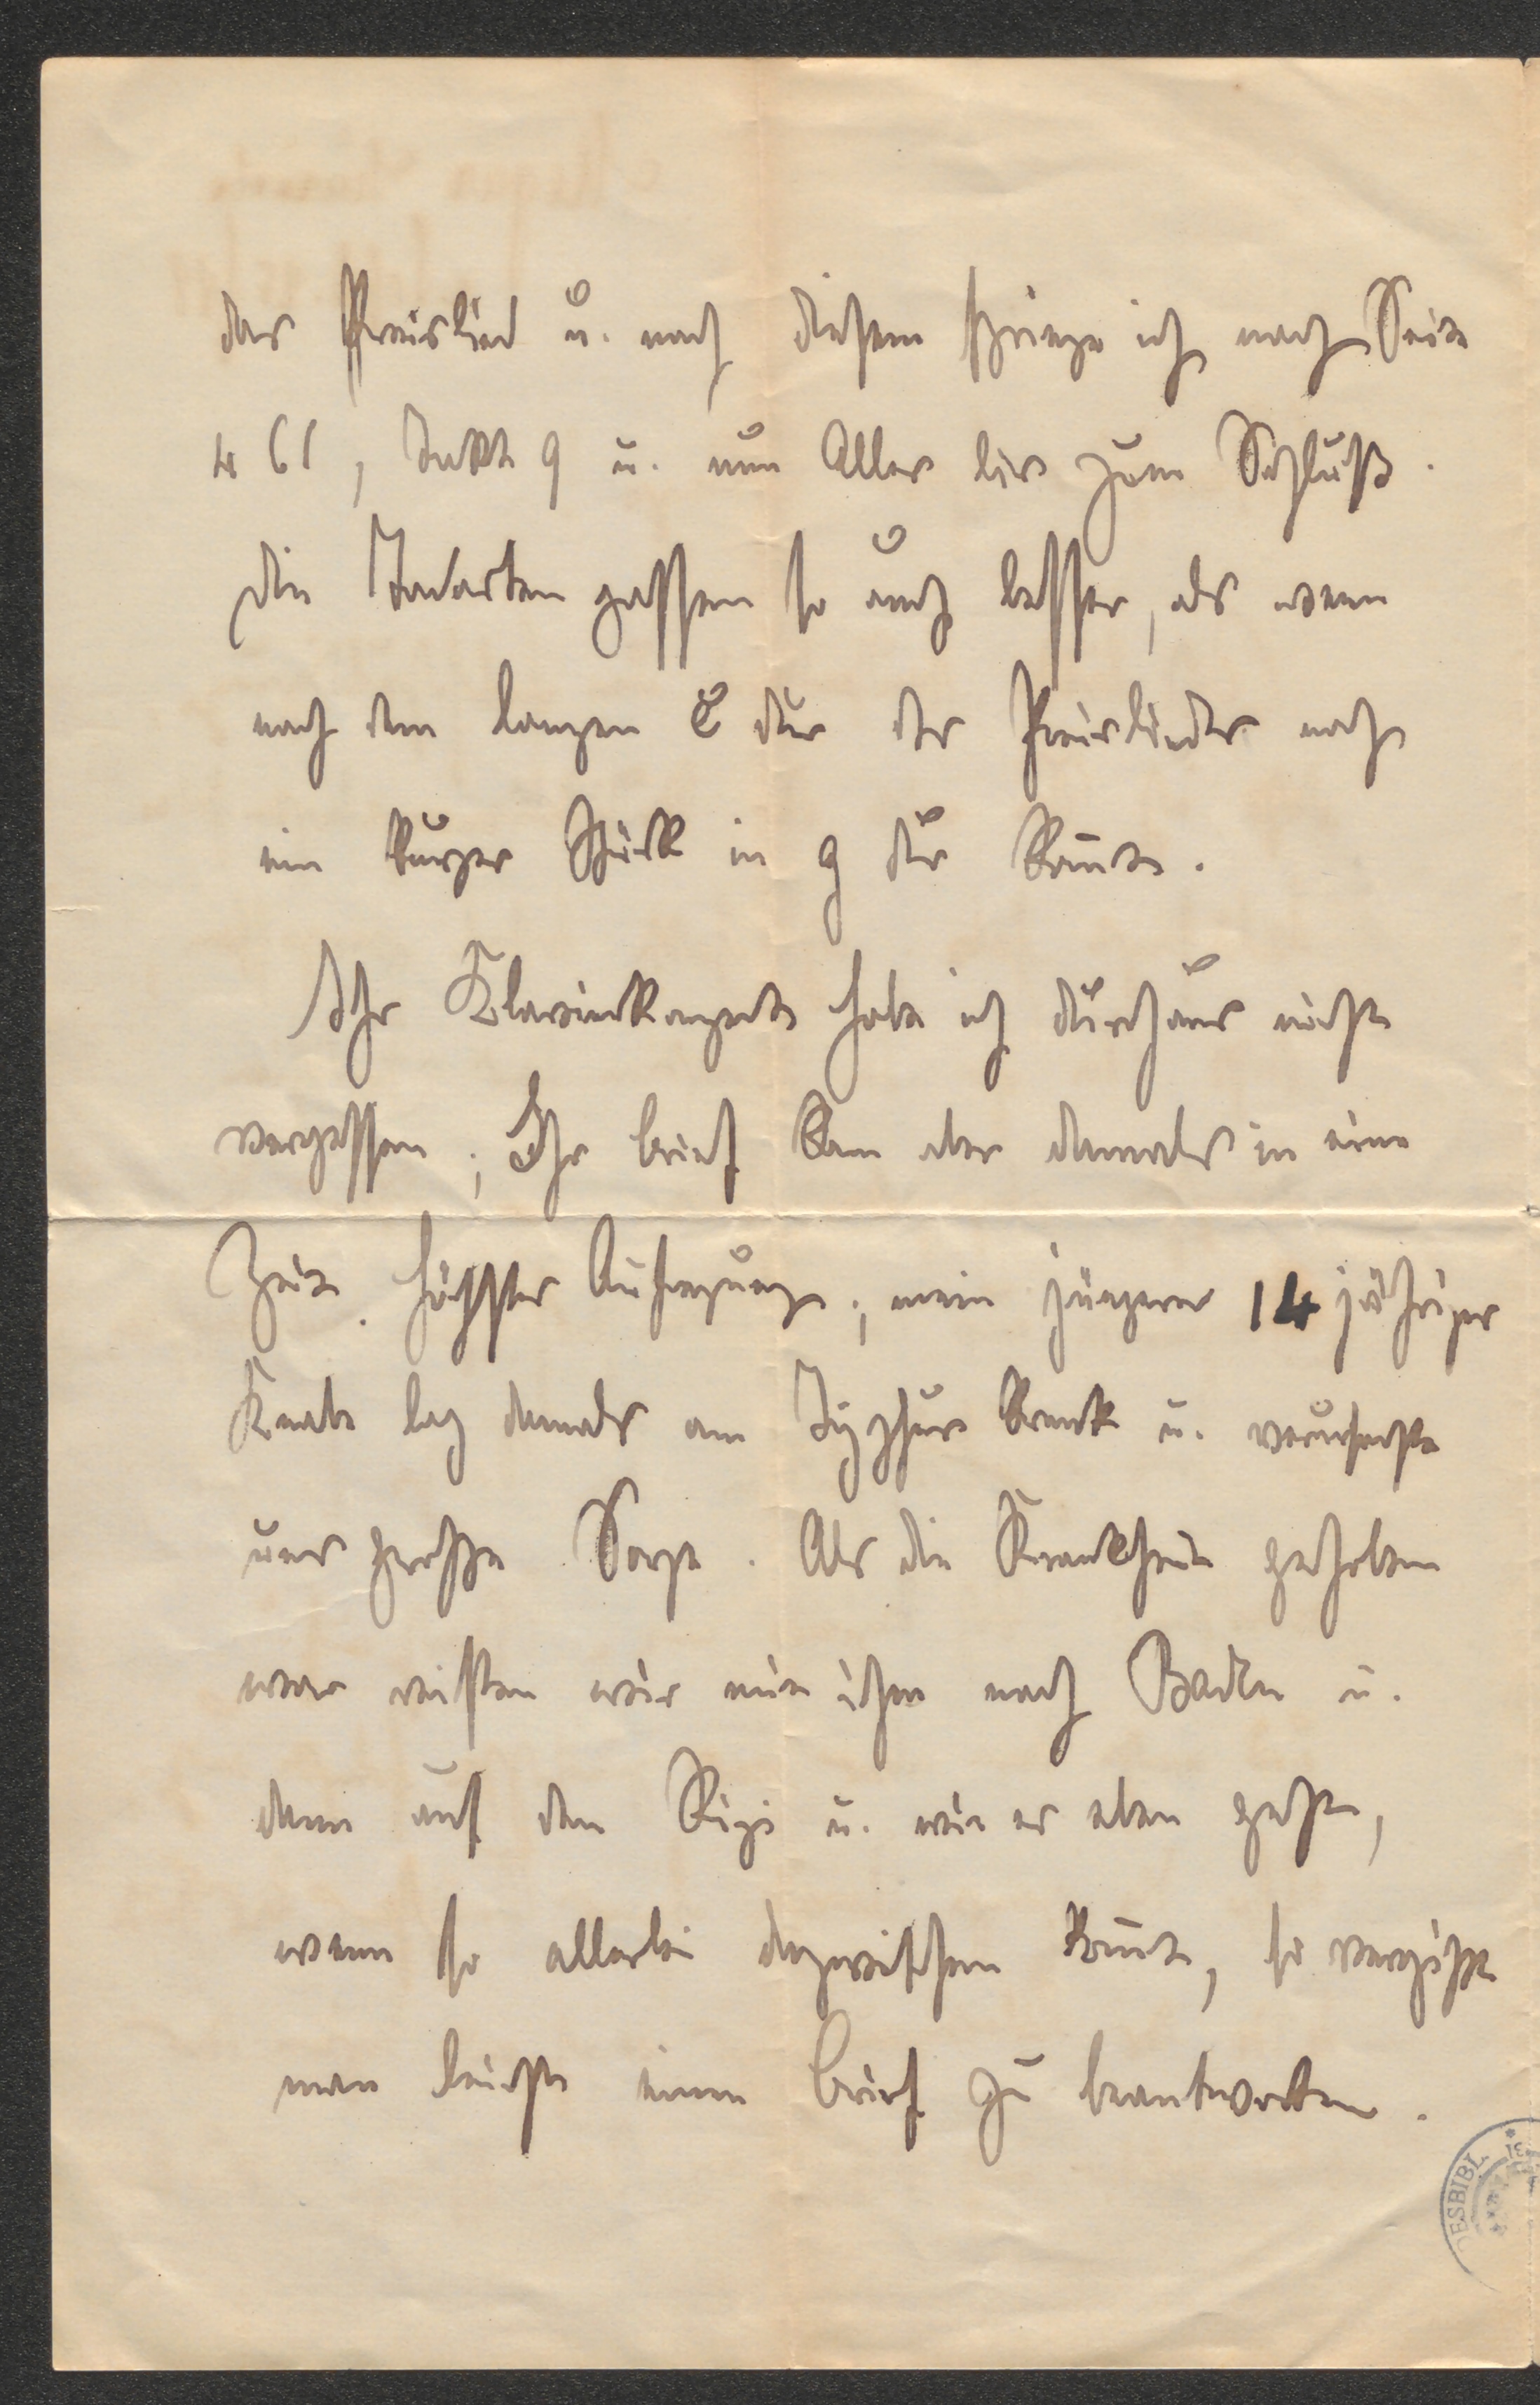 das Preislied u. nach diesem springe ich nach Seite
461, Takt 9 u. nun Alles bis zum Schluß.
Die Tonarten passen so auch besser, als wenn
nach dem langen C dur des Preisliedes noch
ein kurzes Stück in g dur kom̄t.
Ihr Klavierkonzert habe ich durchaus nicht
vergessen; Ihr Brief kam aber damals in eine
Zeit höchster Aufregung; mein jüngerer 14 jähriger
Knabe lag damals am Typhus krank u. verursachte
uns große Sorge. Als die Krankheit gehoben
war reisten wir mit ihm nach Baden u.
dann auf den Rigi u. wie es eben geht,
wenn so allerlei dazwischen kom̄t, so vergißt
man leicht einen Brief zu beantworten.
DESBIBL.